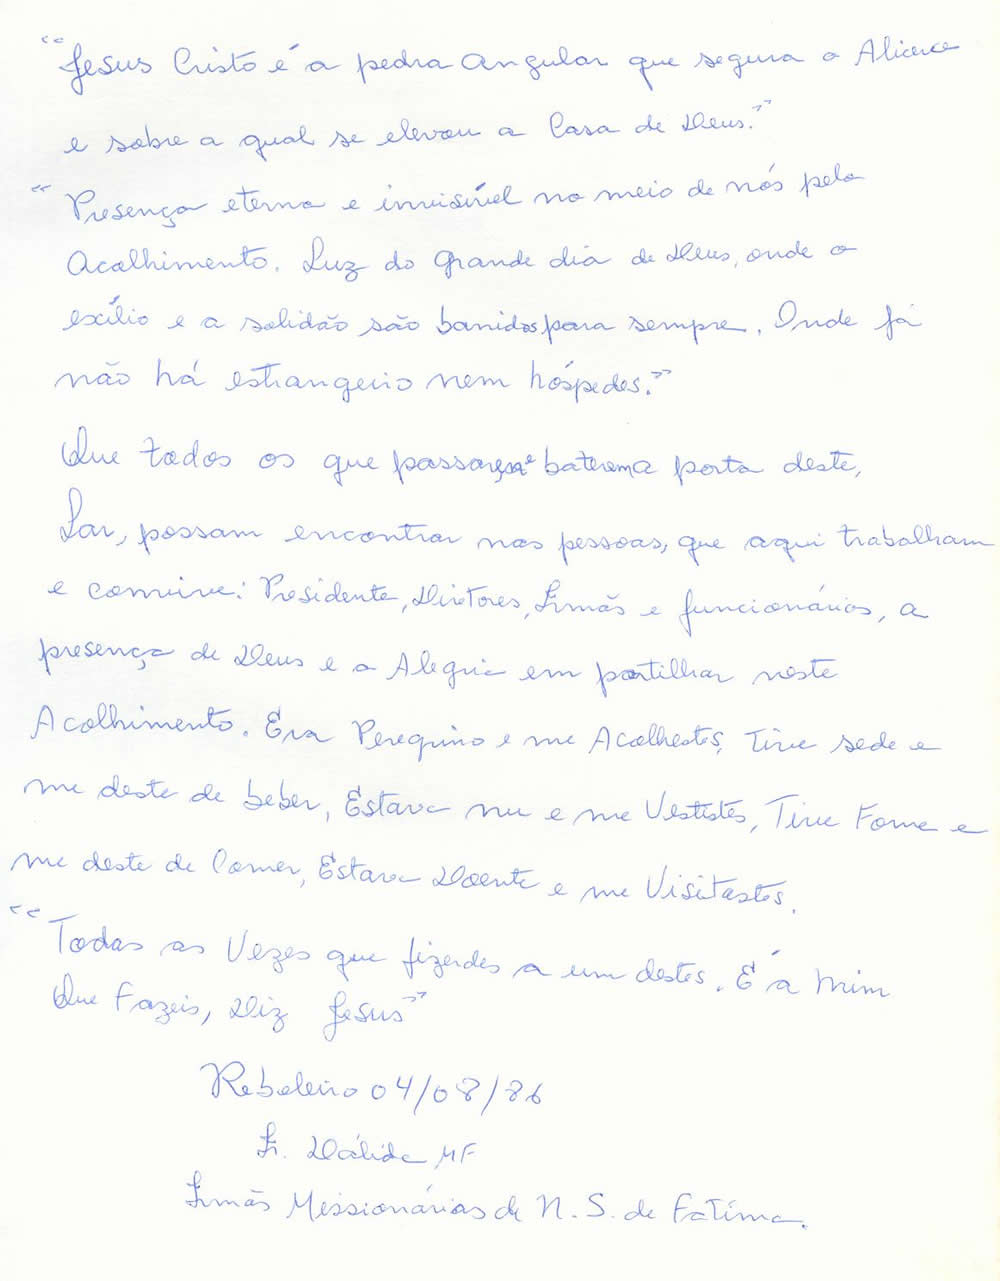 "Jesus Cristo é a pedra angular que segura o Alicerce
e sobre a qual se elevou a Casa de Deus."
"Presença eterna e invisível no meio de nós pelo
Acolhimento. Luz do grande dia de Deus, onde o
exílio e a solidão são banidos para sempre. Onde já
não há estrangeiro nem hóspedes."
Que todos os que passarem e baterem a porta deste,
Lar, possam encontrar nas pessoas, que aqui trabalham
e convive: Presidente, Diretores, Irmãs e funcionários, a
presença de Deus e a Alegria em partilhar neste
Acolhimento. Era Peregrino e me Acolhestes, Tive sede e
me deste de beber, Estava nu e me Vestistes, Tive Fome e
me deste de Comer, Estava Doente e me Visitastes.
"Todas as Vezes que fizerdes a um destes. É a mim
Que Fazeis, Diz Jesus"
04/08/86
Ir. Dálida MF
Irmãs Missionárias de N. S. de Fatíma.